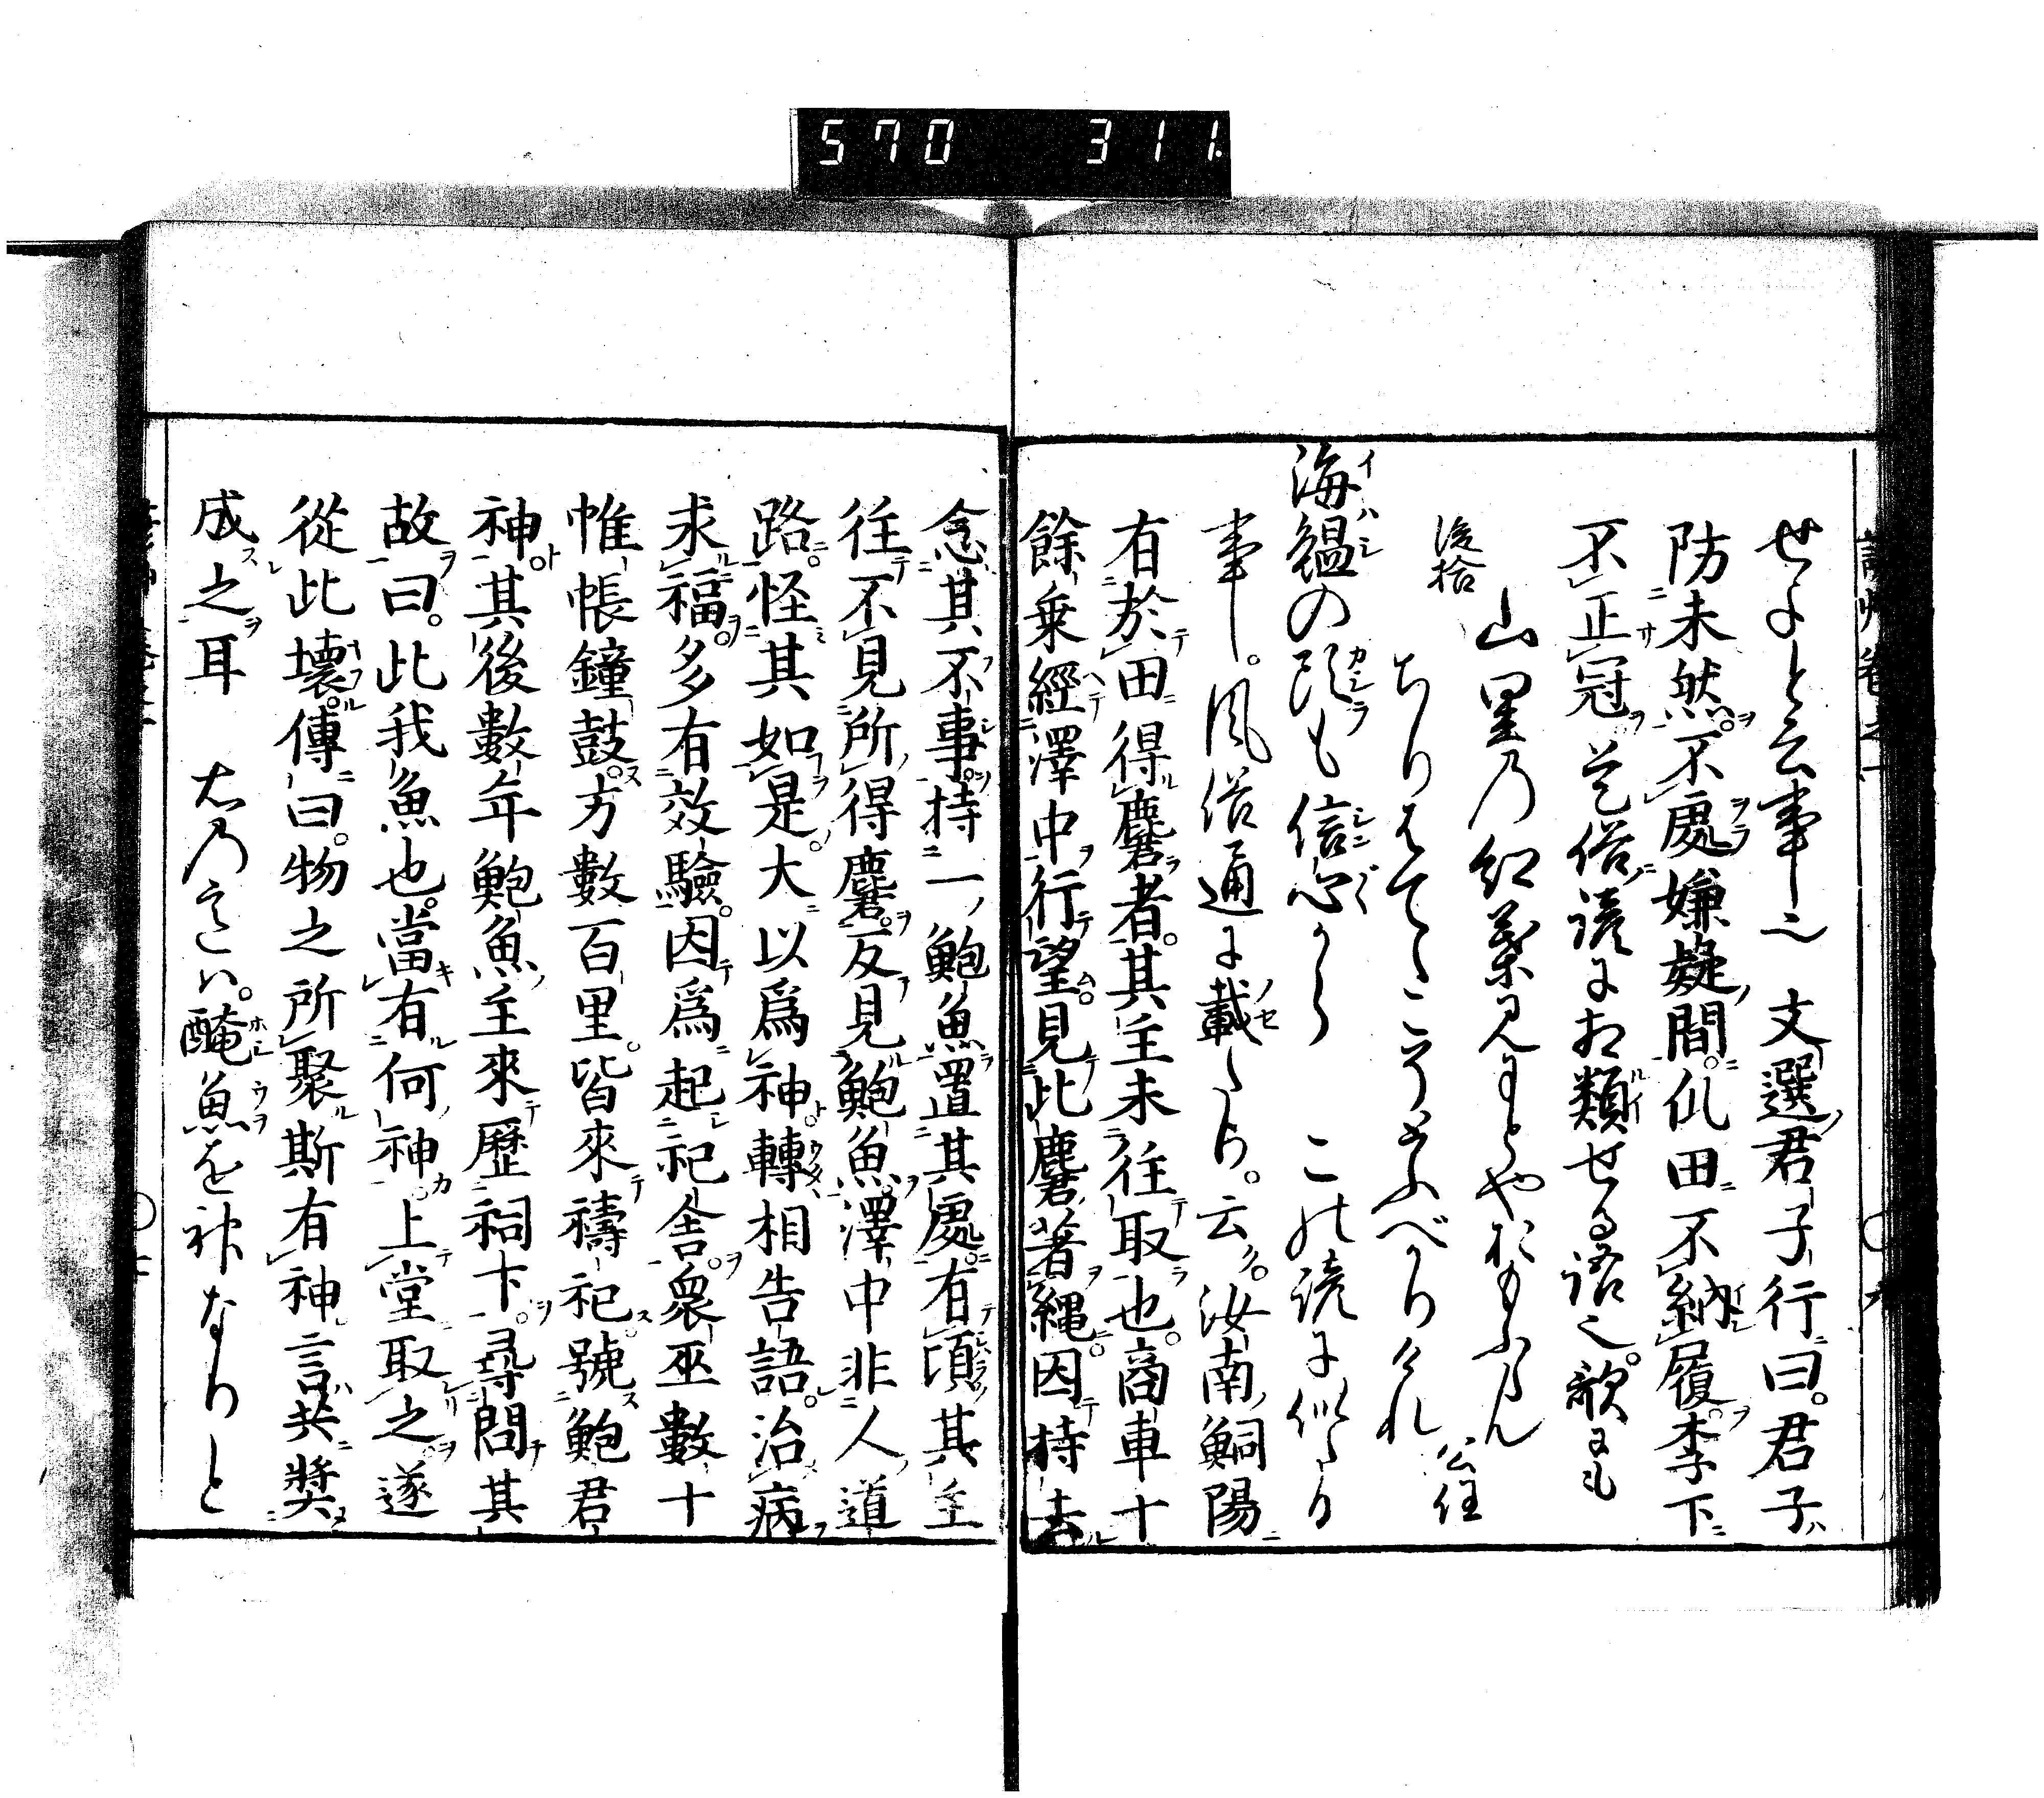 570 311.
せよと云事也 文選君子行曰。君子
防未然。不處嫌疑間。瓜田不納履。李下
不正冠 是俗諺に相類せる語也。歌にも
後拾
山里乃紅葉見にとやおもふらん
ちりはてゝこそとふべかりけれ 公任
海鰮の頭も信心から この諺に似たる
事。風俗通に載たり。云。汝南鮦陽
有於田得麏者。其主未往取也。商車十
餘乗經澤中行望。見此麏著縄。因持去
念其不事持一鮑魚置其處有頃其主
往不見所得麏。反見鮑魚。澤中非人道
路。怪其如是。大以爲神。轉相告語。治病
求福。多有效驗。因爲起祀舎。衆巫數十
帷帳鐘鼓。方數百里。皆來禱祀。號鮑君
神。其後數年鮑魚主來歷祠下。尋問其
故曰。此我魚也。當有何神。上堂取之。遂
從此壞。傳曰。物之所聚斯有神言共奬
成之耳 右乃こゝろハ。醃魚を神なりと